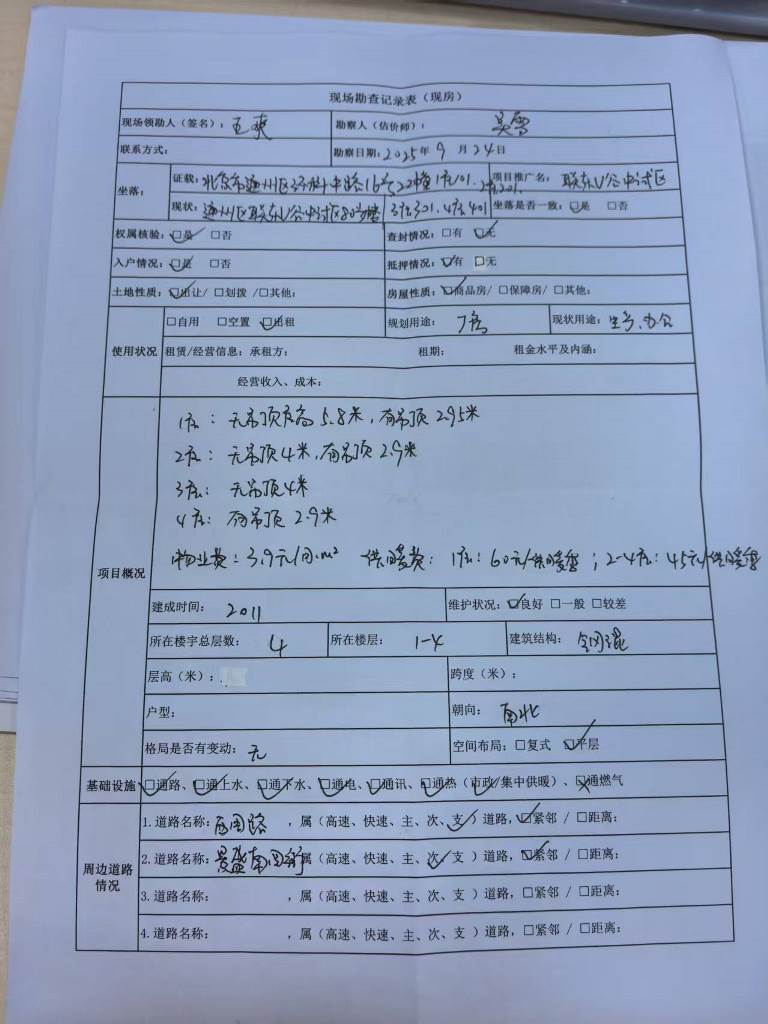 现场勘查记录表（现房）
现场领勘人（签名）：王爽 勘察人（估价师）：吴雪
联系方式： 勘察日期：2025年9月24日
坐落： 证载：北京市通州区 中路16号22幢1层101、2层201、 项目推广名：联东U谷中试区
现状：通州区联东U谷中试区80号楼 3层301、4层401 坐落是否一致：☑是 □否
权属核验：☑是 □否 查封情况：□有 ☑无
入户情况：☑是 □否 抵押情况：☑有 □无
土地性质：☑出让/ □划拨 /□其他： 房屋性质：☑商品房/ □保障房/ □其他：
使用状况 □自用 □空置 ☑出租 规划用途：厂房 现状用途：生产、办公
租赁/经营信息：承租方： 租期： 租金水平及内涵：
经营收入、成本：
项目概况
1层：无吊顶层高5.8米，有吊顶2.95米
2层：无吊顶4米，有吊顶2.9米
3层：无吊顶4米
4层：有吊顶2.9米
物业费：3.9元/月·m² 供暖费：1层：60元/供暖季；2-4层：45元/供暖季
建成时间：2011 维护状况：☑良好 □一般 □较差
所在楼宇总层数：4 所在楼层：1-4 建筑结构：钢混
层高（米）： 跨度（米）：
户型： 朝向：南北
格局是否有变动：无 空间布局：□复式 ☑平层
基础设施 ☑通路、☑通上水、☑通下水、☑通电、☑通讯、☑通热（市政/集中供暖）、☒通燃气
周边道路情况
1.道路名称：西周路，属（高速、快速、主、次、支✓）道路，☑紧邻 / □距离：
2.道路名称：景盛南四街 属（高速、快速、主、次✓、支）道路，☑紧邻 / □距离：
3.道路名称： ，属（高速、快速、主、次、支 ）道路，□紧邻 / □距离：
4.道路名称： ，属（高速、快速、主、次、支 ）道路，□紧邻 / □距离：